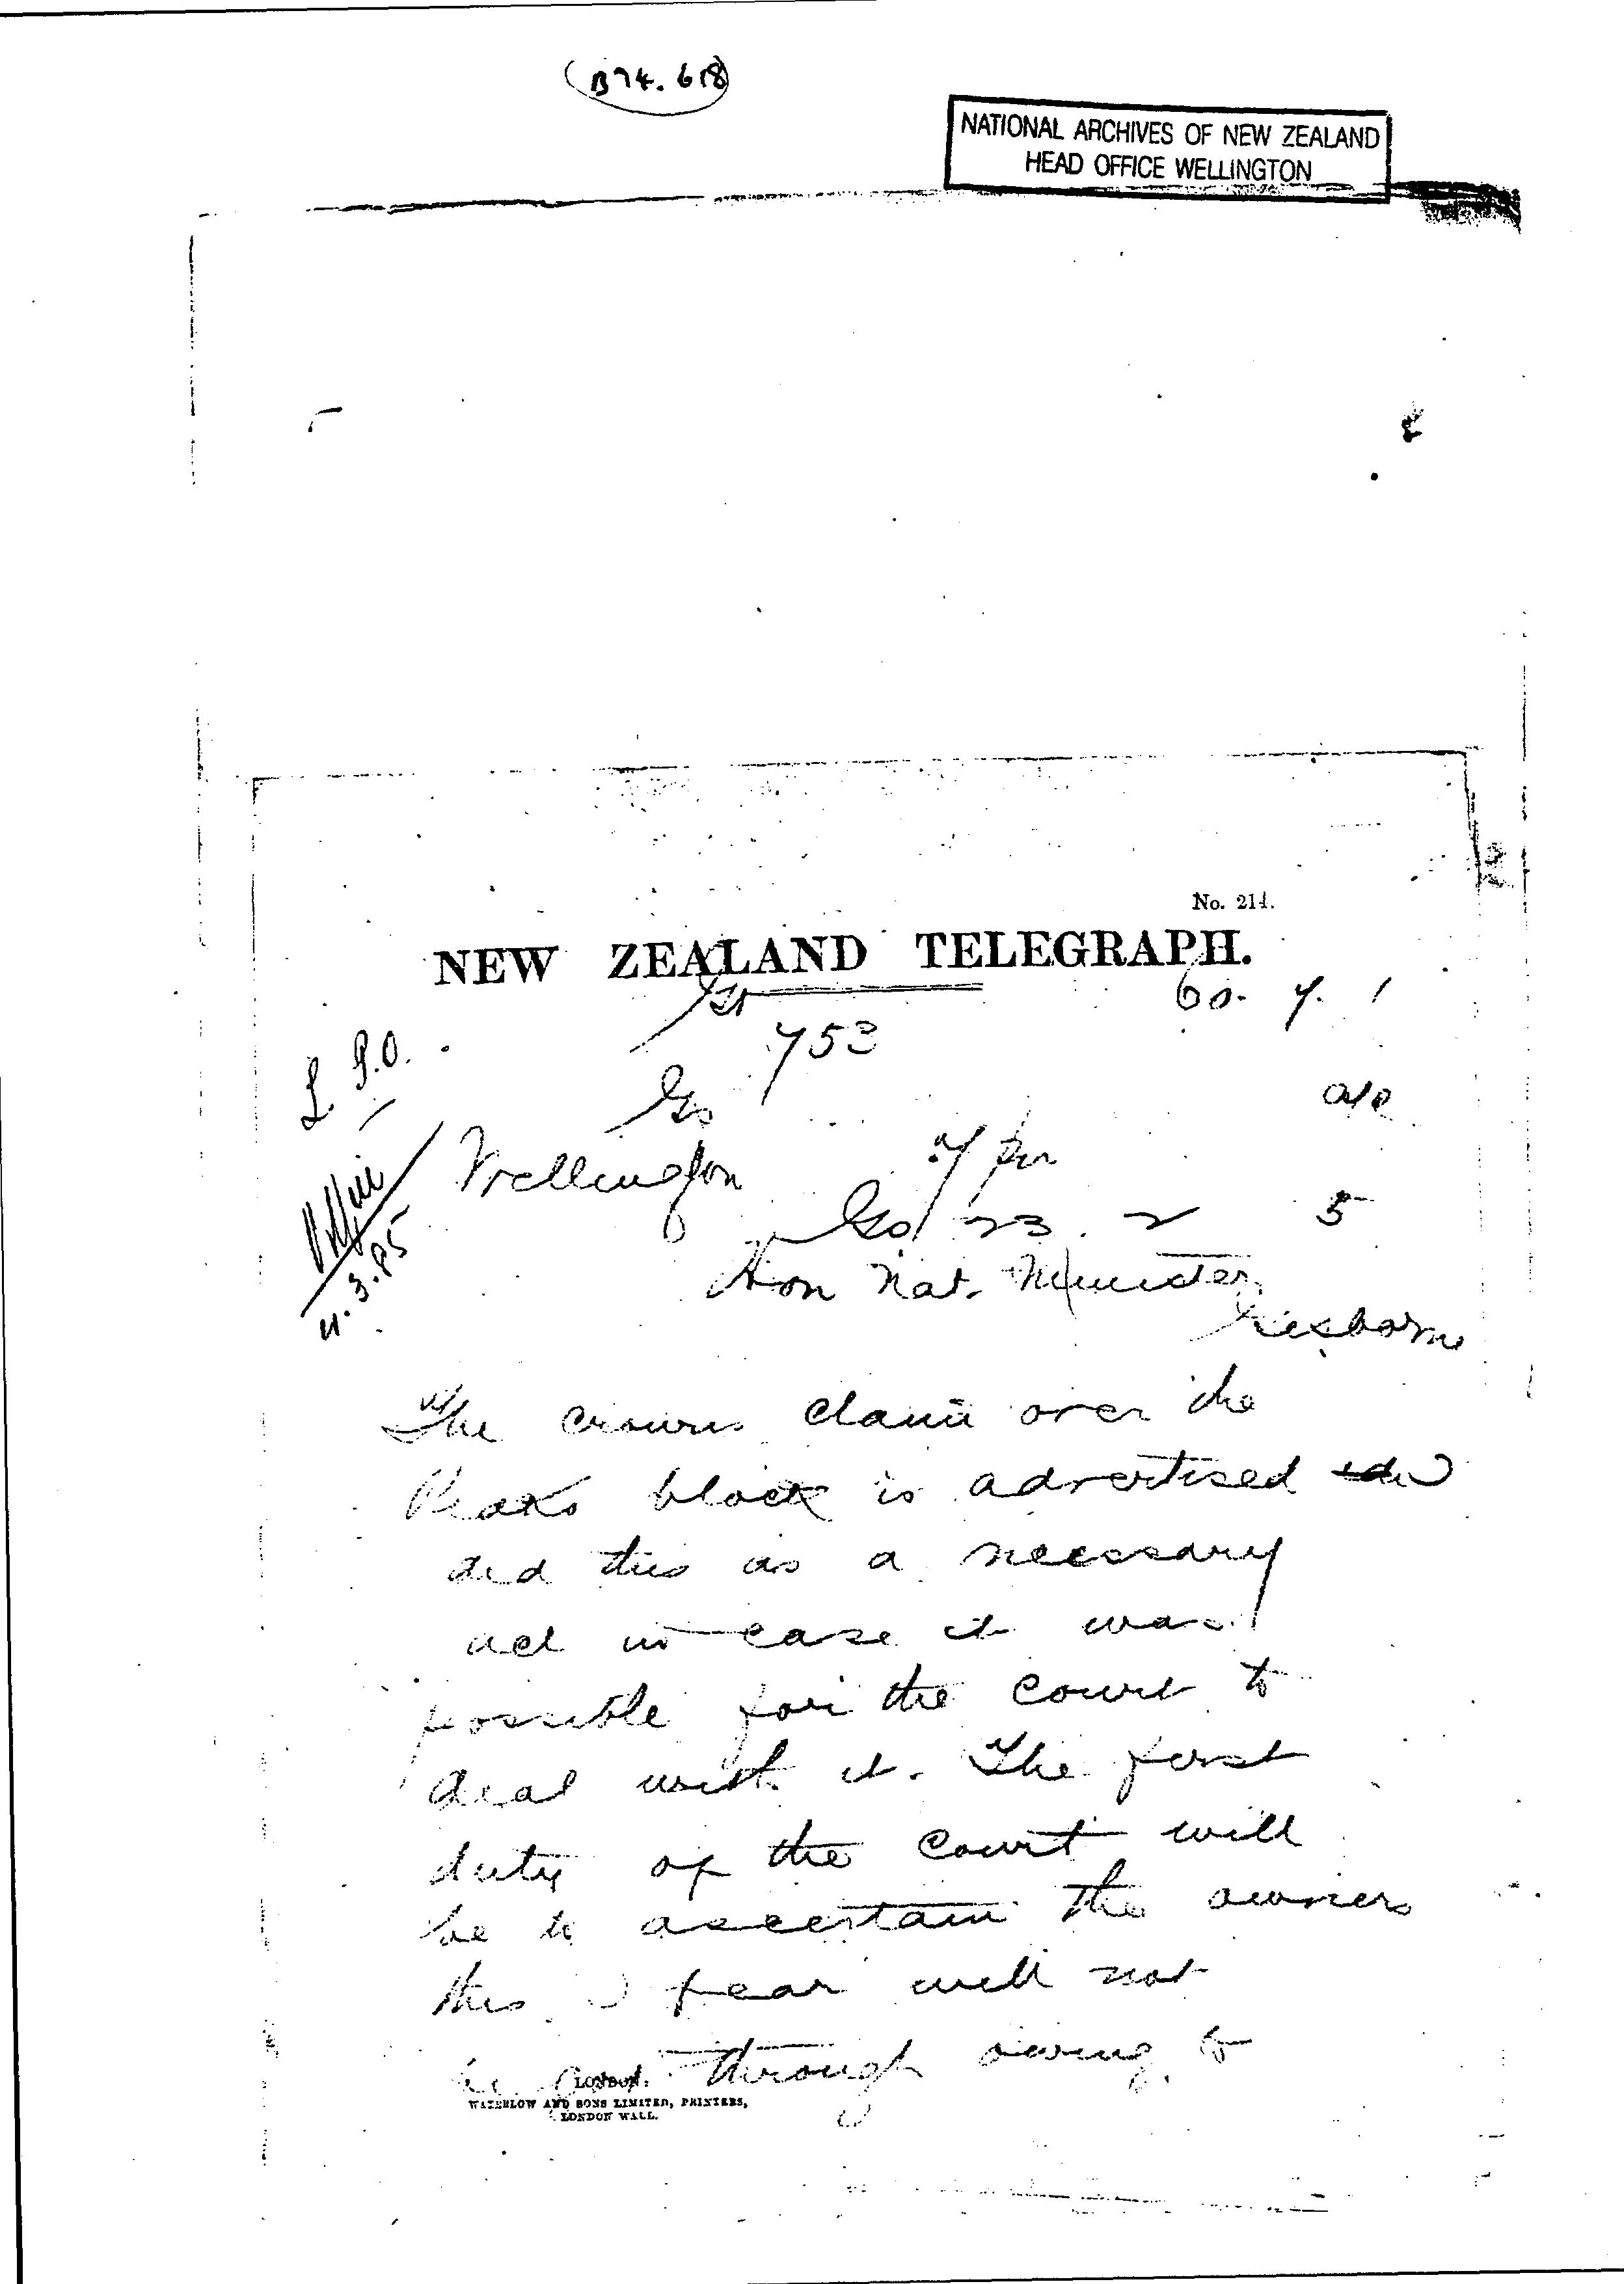 B74. 618
NATIONAL ARCHIVES OF NEW ZEALAND
HEAD OFFICE WELLINGTON
No. 214.
NEW ZEALAND TELEGRAPH.
60. 7. 1
753
L P.O.
Wellington
11.3.85
23 2 5
Hon Nat. Minister
Gisborne
The crowns claim over the
block is advertised
did this as a necessary
act in case it was
possible for the court to
deal with it. The first
duty of the Court will
be to ascertain the owners
this I fear will not
be got through owing to
LONDON:
WATERLOW AND SONS LIMITED, PRINTERS,
LONDON WALL.